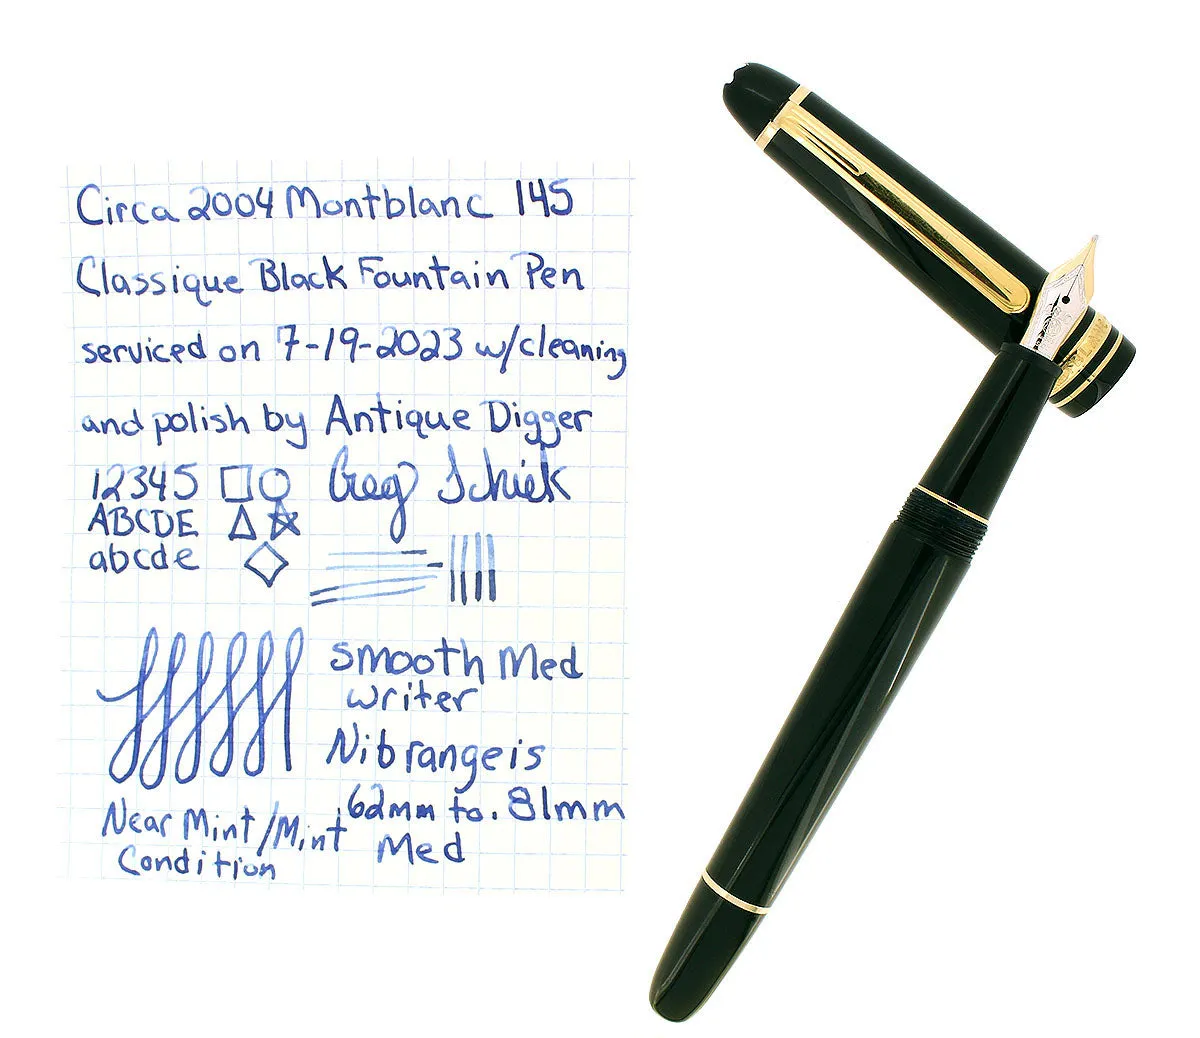 Circa 2004 Montblanc 145
Classique Black Fountain Pen
serviced on 7-19-2023 w/cleaning
and polish by Antique Digger
12345
Greg Schiek
ABCDE
abcde
smooth Med
writer
Nib range is
.62mm to .81mm
Med
Near Mint/Mint
Condition